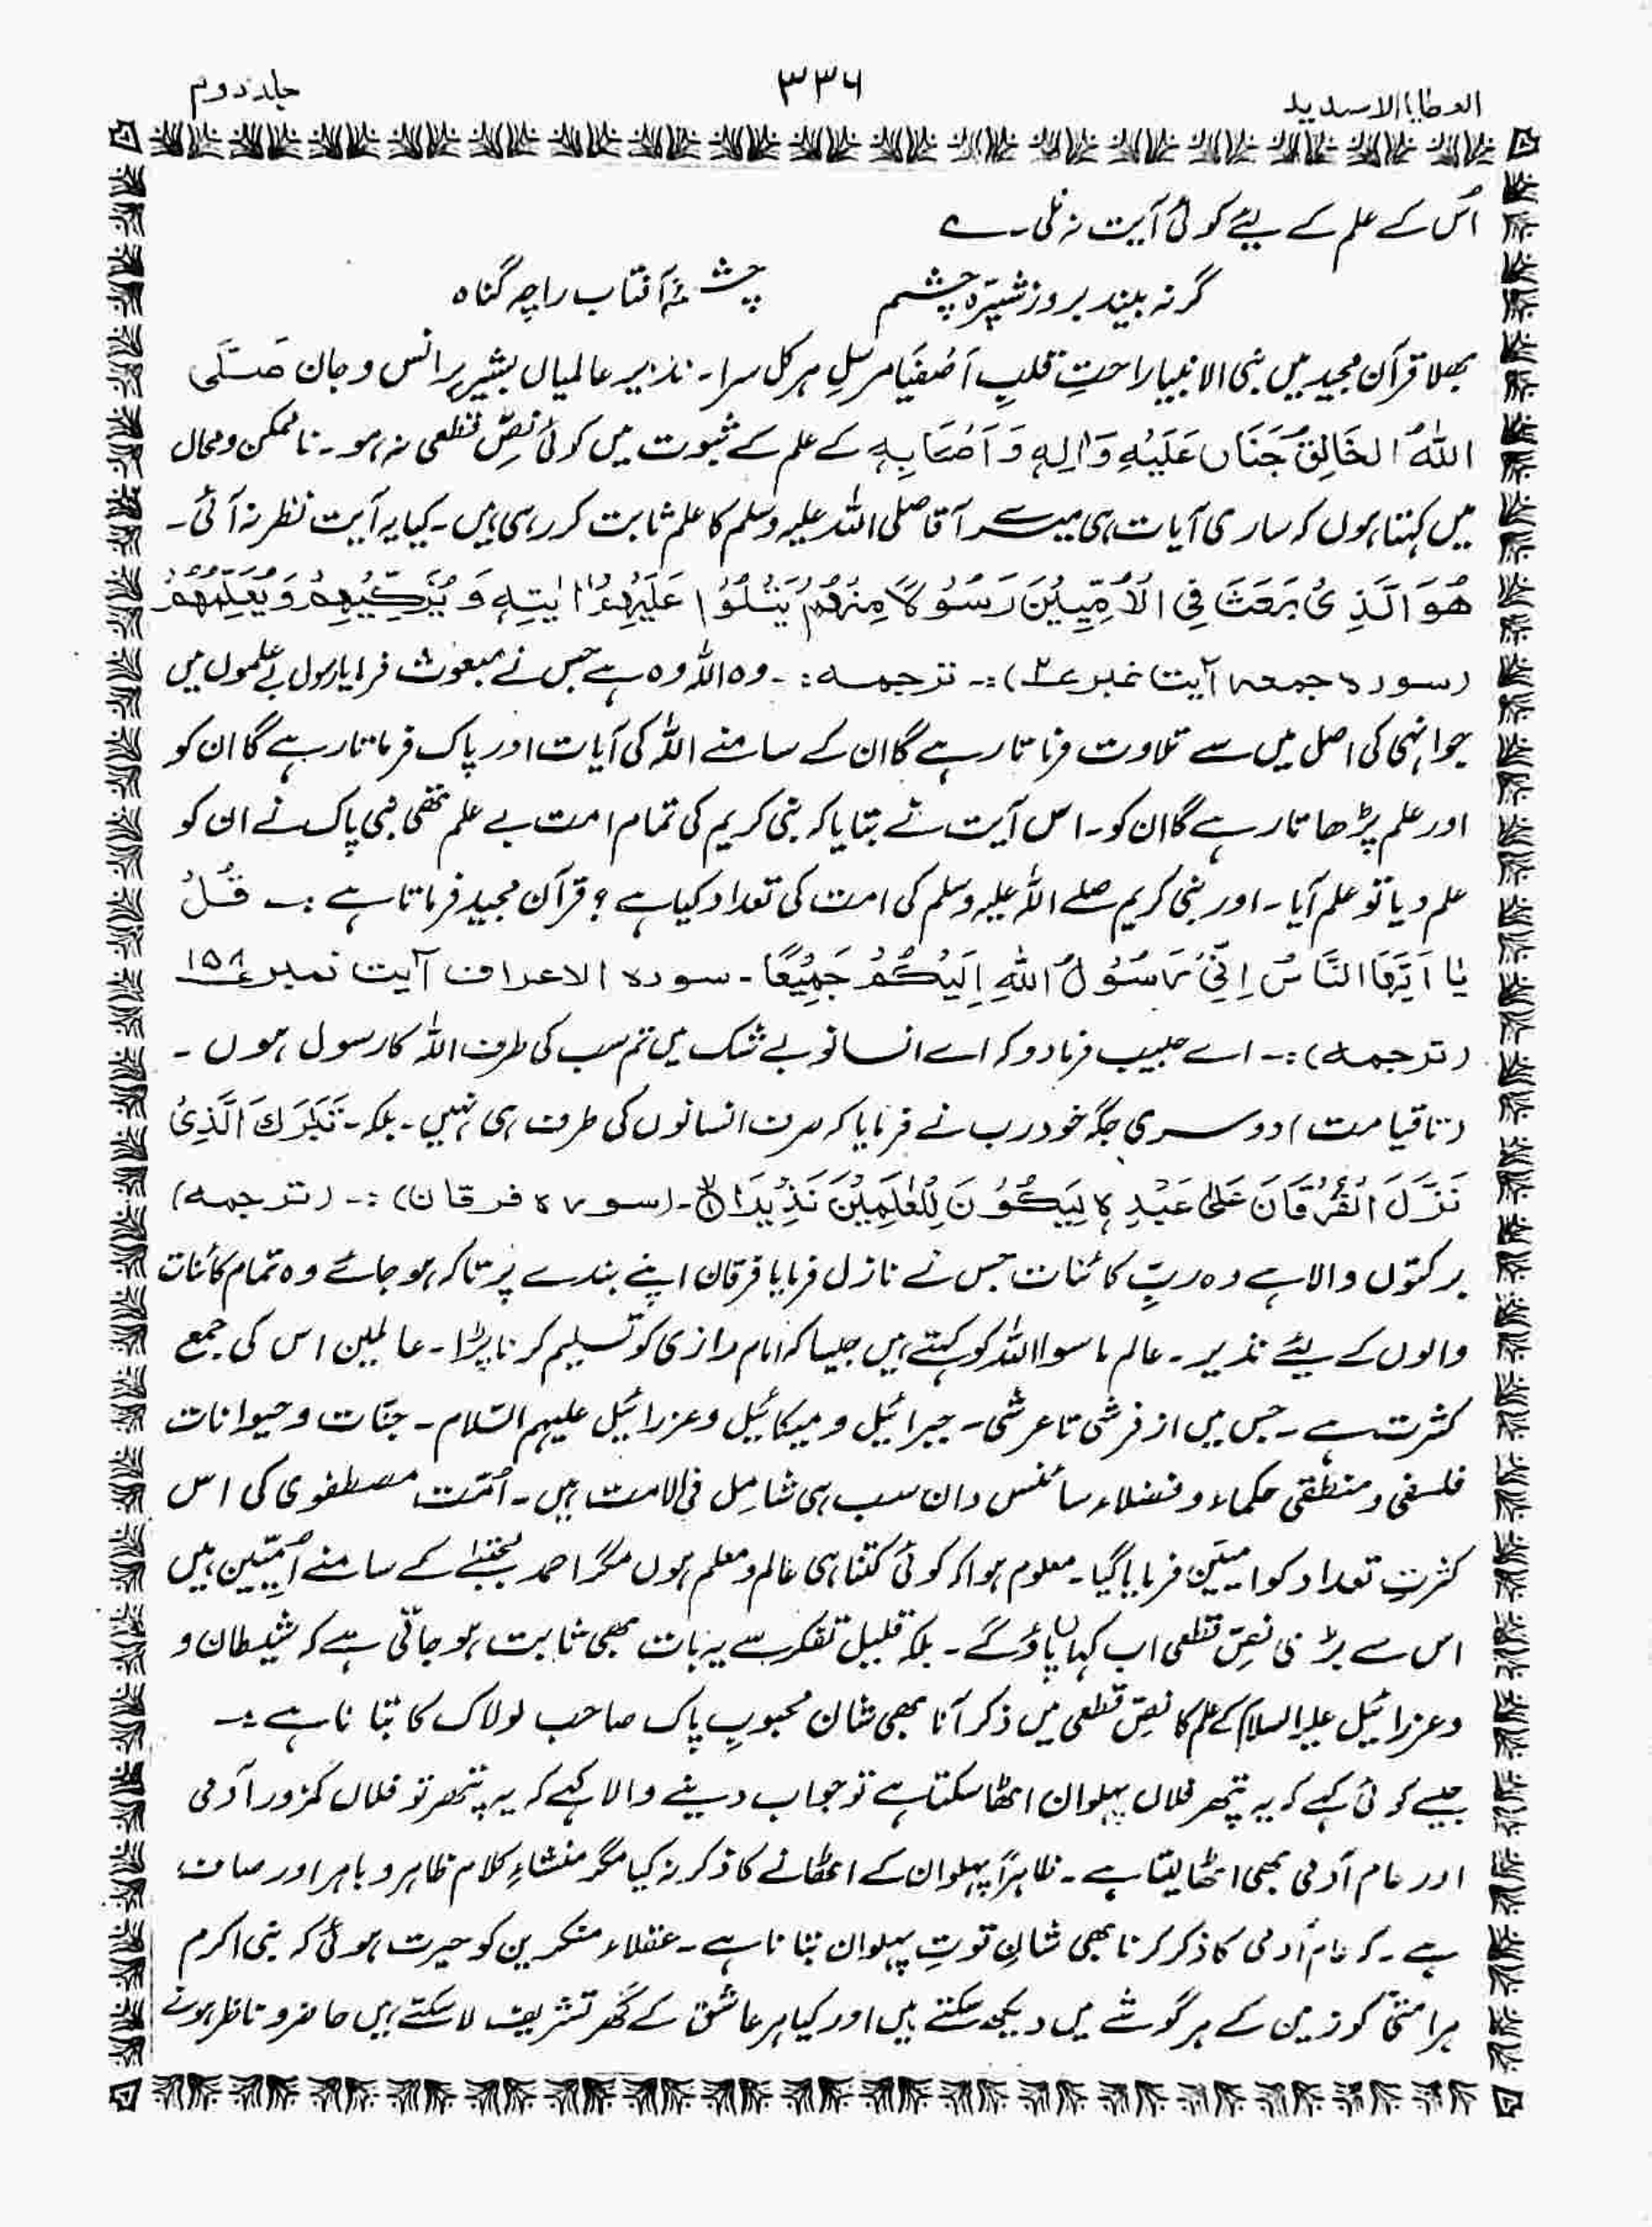 العطایا الاسدیہ
۳۳۶
جلد دوم
اُس کے علم کے لیئے کوئی آیت نہ ملی۔ ے
گر نہ بیند بروز شپرّہ چشم چشمۂ آفتاب راچہ گناہ
بھلا قرآن مجید میں نبی الانبیا راحتِ قلبِ اَصْفیَا مرسلِ ہر کل سرا۔ نذیر عالمیاں بشیر ہر انس و جان صَلَّی
اللہُ الخَالِقُ جَنَاں عَلَیْہِ وَاٰلِہٖ وَ اَصْحَابِہٖ کے علم کے ثبوت میں کوئی نصِّ قطعی نہ ہو۔ ناممکن و محال
میں کہتا ہوں کہ ساری آیات ہی میرے آقا صلی اللہ علیہ وسلم کا علم ثابت کر رہی ہیں۔ کیا یہ آیت نظر نہ آئی۔
ھُوَ الَّذِیْ بَعَثَ فِی الْاُمِّیّٖیْنَ رَسُوْلًا مِنْھُمْ یَتْلُوْا عَلَیْھِمْ اٰیٰتِہٖ وَ یُزَکِّیْھِمْ وَ یُعَلِّمُھُمْ
(سورہ جمعہ آیت نمبر ۲)؛۔ ترجمہ:۔ وہ اللہ وہ ہے جس نے مبعوث فرمایا رسول بے علموں میں
جو انہی کی اصل میں سے تلاوت فرماتا رہے گا ان کے سامنے اللہ کی آیات اور پاک فرماتا رہے گا ان کو
اور علم پڑھاتا رہے گا ان کو۔ اس آیت نے بتایا کہ نبی کریم کی تمام امت بے علم تھی نبی پاک نے ان کو
علم دیا تو علم آیا۔ اور نبی کریم صلے اللہ علیہ وسلم کی امت کی تعداد کیا ہے ؟ قرآن مجید فرماتا ہے :۔ قُلْ
یٰا اَیُّھَا النَّاسُ اِنِّیْ رَسُوْلُ اللہِ اِلَیْکُمْ جَمِیْعًا۔ سورہ الاعراف آیت نمبر ۱۵۸
(ترجمہ):۔ اے حبیب فرما دو کہ اے انسانو بے شک میں تم سب کی طرف اللہ کا رسول ہوں ۔
(تا قیامت) دوسری جگہ خود رب نے فرمایا کہ صرف انسانوں کی طرف ہی نہیں۔ بلکہ۔ تَبٰرَكَ الَّذِیْ
نَزَّلَ الْفُرْقَانَ عَلٰی عَبْدِہٖ لِیَکُوْنَ لِلْعٰلَمِیْنَ نَذِیْرَا۔ (سورہ فرقان) :۔ (ترجمہ)
برکتوں والا ہے وہ ربِّ کائنات جس نے نازل فرمایا فرقان اپنے بندے پر تاکہ ہو جائے وہ تمام کائنات
والوں کے لیئے نذیر۔ عالم ما سوا اللہ کو کہتے ہیں جیسا کہ امام رازی کو تسلیم کرنا پڑا۔ عالمین اس کی جمع
کثرت ہے۔ جس میں از فرشی تا عرشی۔ جبرائیل و میکائیل و عزرائیل علیہم السّلام۔ جنّات و حیوانات
فلسفی و منطقی حکماء و فضلاء سائنس دان سب ہی شامل فی الامت ہیں۔ اُمّت مصطفوی کی اس
کثرتِ تعداد کو امیّین فرمایا گیا۔ معلوم ہوا کہ کوئی کتنا ہی عالم و معلم ہوں مگر احمد مجتبٰے کے سامنے اُمیّین ہیں
اس سے بڑی نصِّ قطعی اب کہاں پاؤ گے۔ بلکہ قلیل تفکر سے یہ بات بھی ثابت ہو جاتی ہے کہ شیطان و
و عزرائیل علیہ السلام کے علم کا نصِّ قطعی میں ذکر آنا بھی شان محبوبِ پاک صاحب لولاک کا بتانا ہے :۔
جیسے کوئی کہے کہ یہ پتھر فلاں پہلوان اٹھا سکتا ہے تو جواب دینے والا کہے کہ یہ پتھر تو فلاں کمزور آدمی
اور عام آدمی بھی اٹھا لیتا ہے۔ ظاہراً پہلوان کے اٹھانے کا ذکر نہ کیا مگر منشاءِ کلام ظاہر و باہر اور صاف
ہے۔ کہ عام آدمی کا ذکر کرنا بھی شانِ قوتِ پہلوان بتانا ہے۔ عقلاء منکرین کو حیرت ہوئی کہ نبی اکرم
ہر امتی کو زمین کے ہر گوشے میں دیکھ سکتے ہیں اور کیا ہر عاشق کے گھر تشریف لا سکتے ہیں حاضر و ناظر ہونے